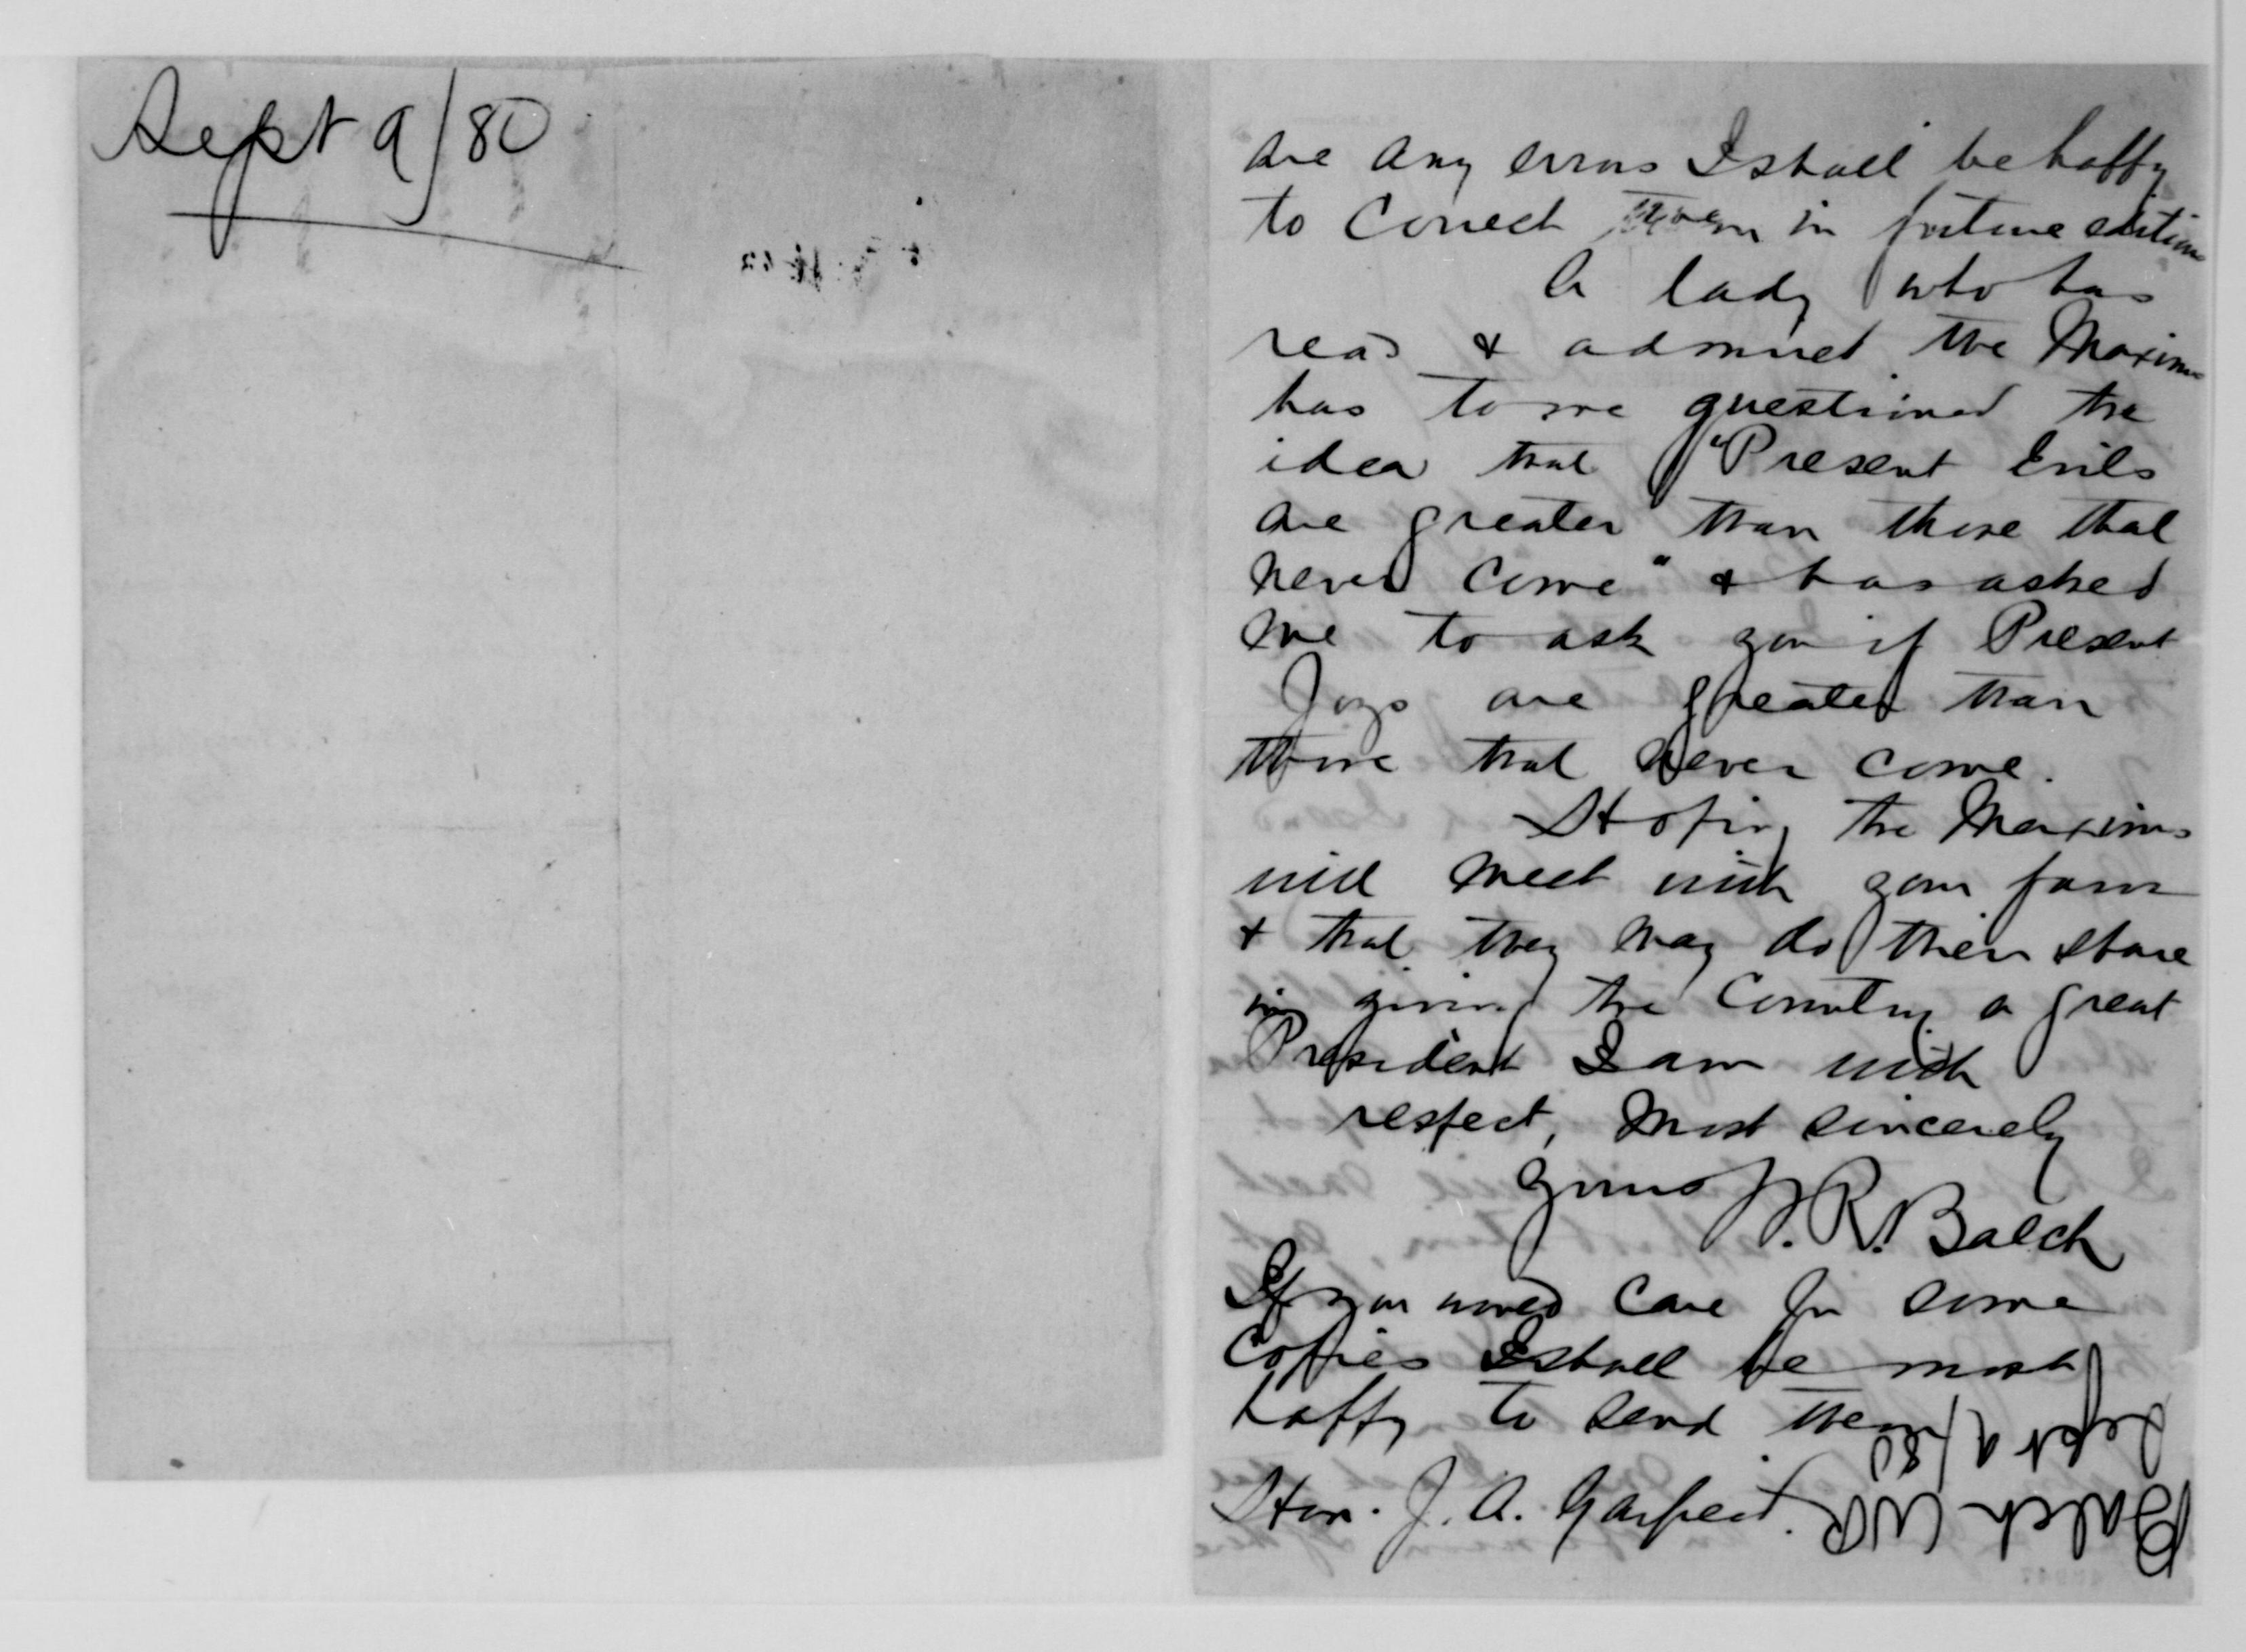 Sept 9/80
are any errors I shall be happy
to correct them in future editions
A lady who has
read & admired the Maxims
has to me questioned the
idea that "Present Evils
are greater than those that
never come" & has asked
me to ask you if Present
Joys are greater than
those that never come.
Hoping the Maxims
will meet with your favor
& that they may do their share
in giving the Country a great
President I am with
respect, Most sincerely
yours W. R. Balch
If you would care for some
copies I shall be most
happy to send them
Hon. J. A. Garfield.
Balch WR
Sept 9/80